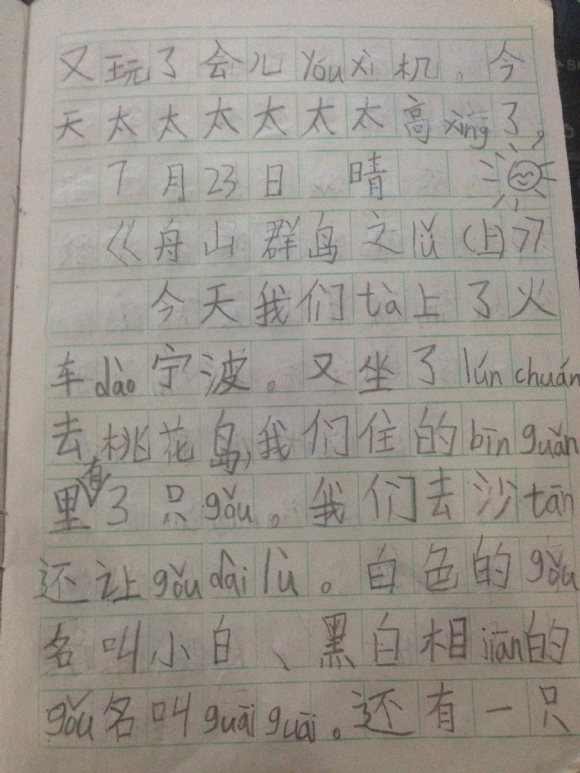 又玩了会儿yóuxì机。今
天太太太太太太高xìng了,
7月23日 晴
《舟山群鸟之lǚ(上)》
今天我们tà上了火
车dào宁波。又坐了lún chuán
去桃花鸟,我们住的bīn guǎn
里有了只gǒu。我们去沙tān
还让gǒu dài lù。白色的gǒu
名叫小白、黑白相jiān的
gǒu名叫guāi guāi。还有一只